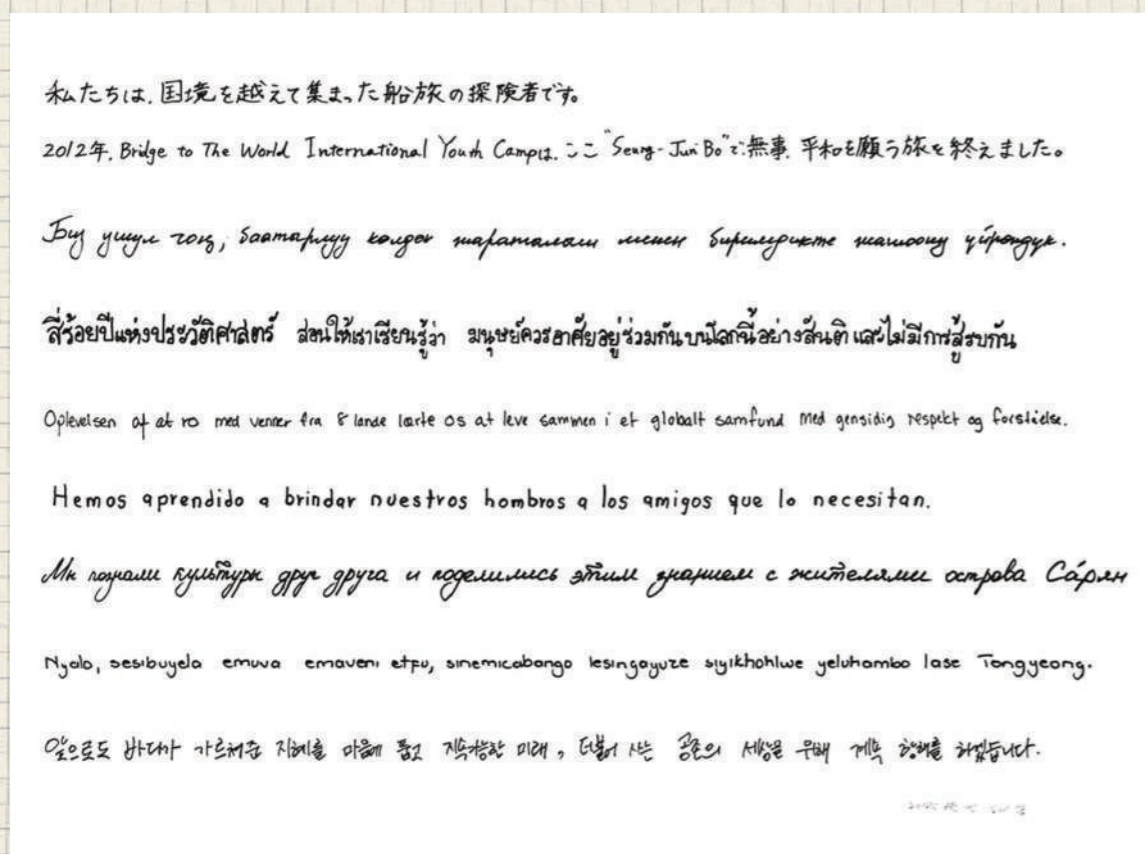 私たちは、国境を越えて集まった船旅の探険者です。
2012年、Bridge to The World International Youth Campは、ここ"Seung-Jun Bo"で無事、平和を願う旅を終えました。
Биз ушул тоң, баатырлуу колдон жараталаш менен биримдикте жашоону үйрөндүк.
สี่ร้อยปีแห่งประวัติศาสตร์ สอนให้เราเรียนรู้ว่า มนุษย์ควรอาศัยอยู่ร่วมกันบนโลกนี้อย่างสันติ และไม่มีการสู้รบกัน
Oplevelsen af at ro med venner fra 8 lande lærte os at leve sammen i et globalt samfund med gensidig respekt og forståelse.
Hemos aprendido a brindar nuestros hombros a los amigos que lo necesitan.
Мы познали культуры друг друга и поделились этим знанием с жителями острова Са́рян
Nyalo, sesibuyela emuva emaveni etfu, sinemicabango lesingayuze siyikhohlwe yeluhambo lase Tongyeong.
앞으로도 바다가 가르쳐준 지혜를 마음에 품고 지속가능한 미래, 더불어 사는 공존의 세상을 위해 계속 항해를 하겠습니다.